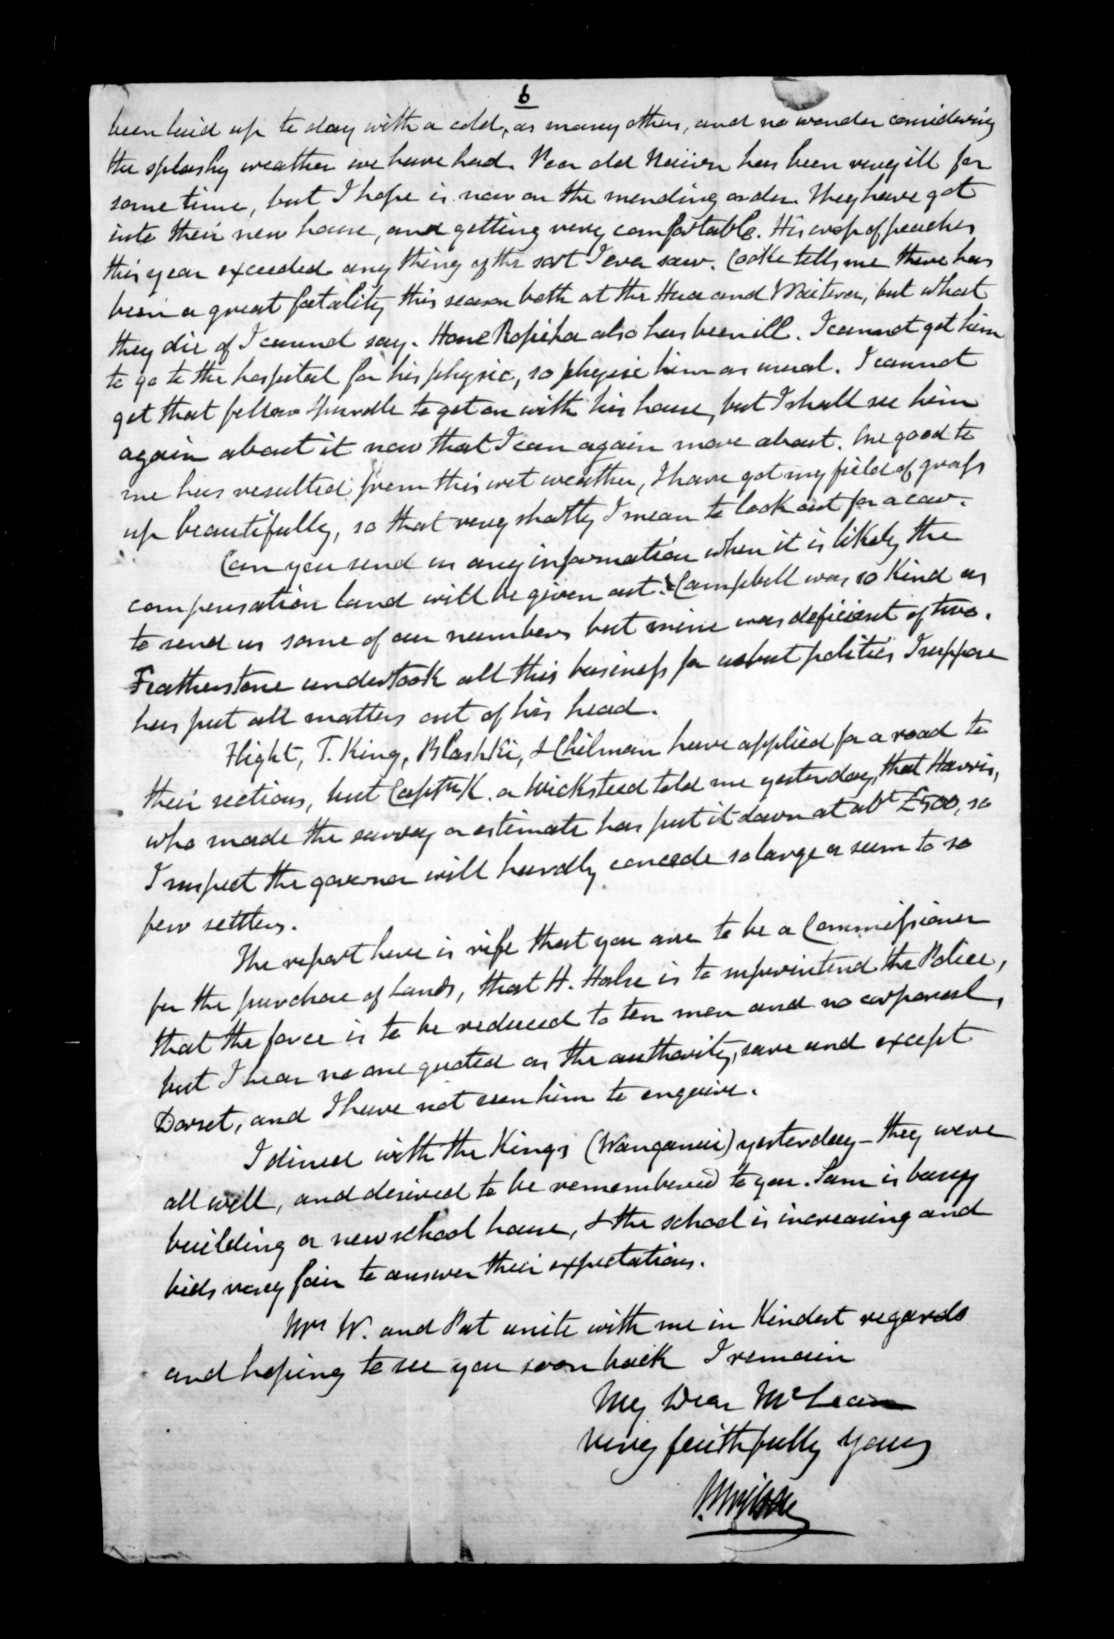 6
been laid up to day with a cold, as many others, and no wonder considering
the splashy weather we have had. Poor old has been very ill for
some time, but I hope is now on the mending order. They have got
into their new house, and getting very comfortable. His crop of peaches
this year exceeded any thing of the sort I ever saw. Cooke tells me there has
been a great fatality this season both at the Hua and Waitera, but what
they die of I cannot say. Hone Ropiha also has been ill. I cannot get him
to go to the hospital for his physic, so physic him as usual. I cannot
get that fellow Spurdle to get on with his house, but I shall see him
again about it now that I can again move about. One good to
me has resulted from this wet weather, I have got my field of grass
up beautifully, so that very shortly I mean to look out for a cow.
Can you send us any information when it is likely the
compensation land will be given out. Campbell was so kind as
to send us some of our numbers but mine was deficient of two.
Featherstone undertook all this business for us but politics I suppose
has put all matters out of his head.
Flight, T. King, Blashki, & Chilman have applied for a road to
their sections, but Captn K. or Wicksteed told me yesterday, that Harris,
who made the survey or estimate has put it down at abt £500, so
I suspect the governor will hardly concede so large a sum to so
few settlers.
The report here is rife that you are to be a Commissioner
for the purchase of Lands, that H. Halse is to superintend the Police,
that the force is to be reduced to ten men and no corporal,
but I hear no one quoted as the authority, save and except
Dorset, and I have not seen him to enquire.
I dined with the Kings (Wanganui) yesterday - they were
all well, and desired to be remembered to you. Sam is busy
building a new school house, & the school is increasing and
bids very fair to answer their expectations.
Mrs W. and Pat unite with me in kindest regards
and hoping to see you soon back I remain
My Dear McLean
very faithfully yours